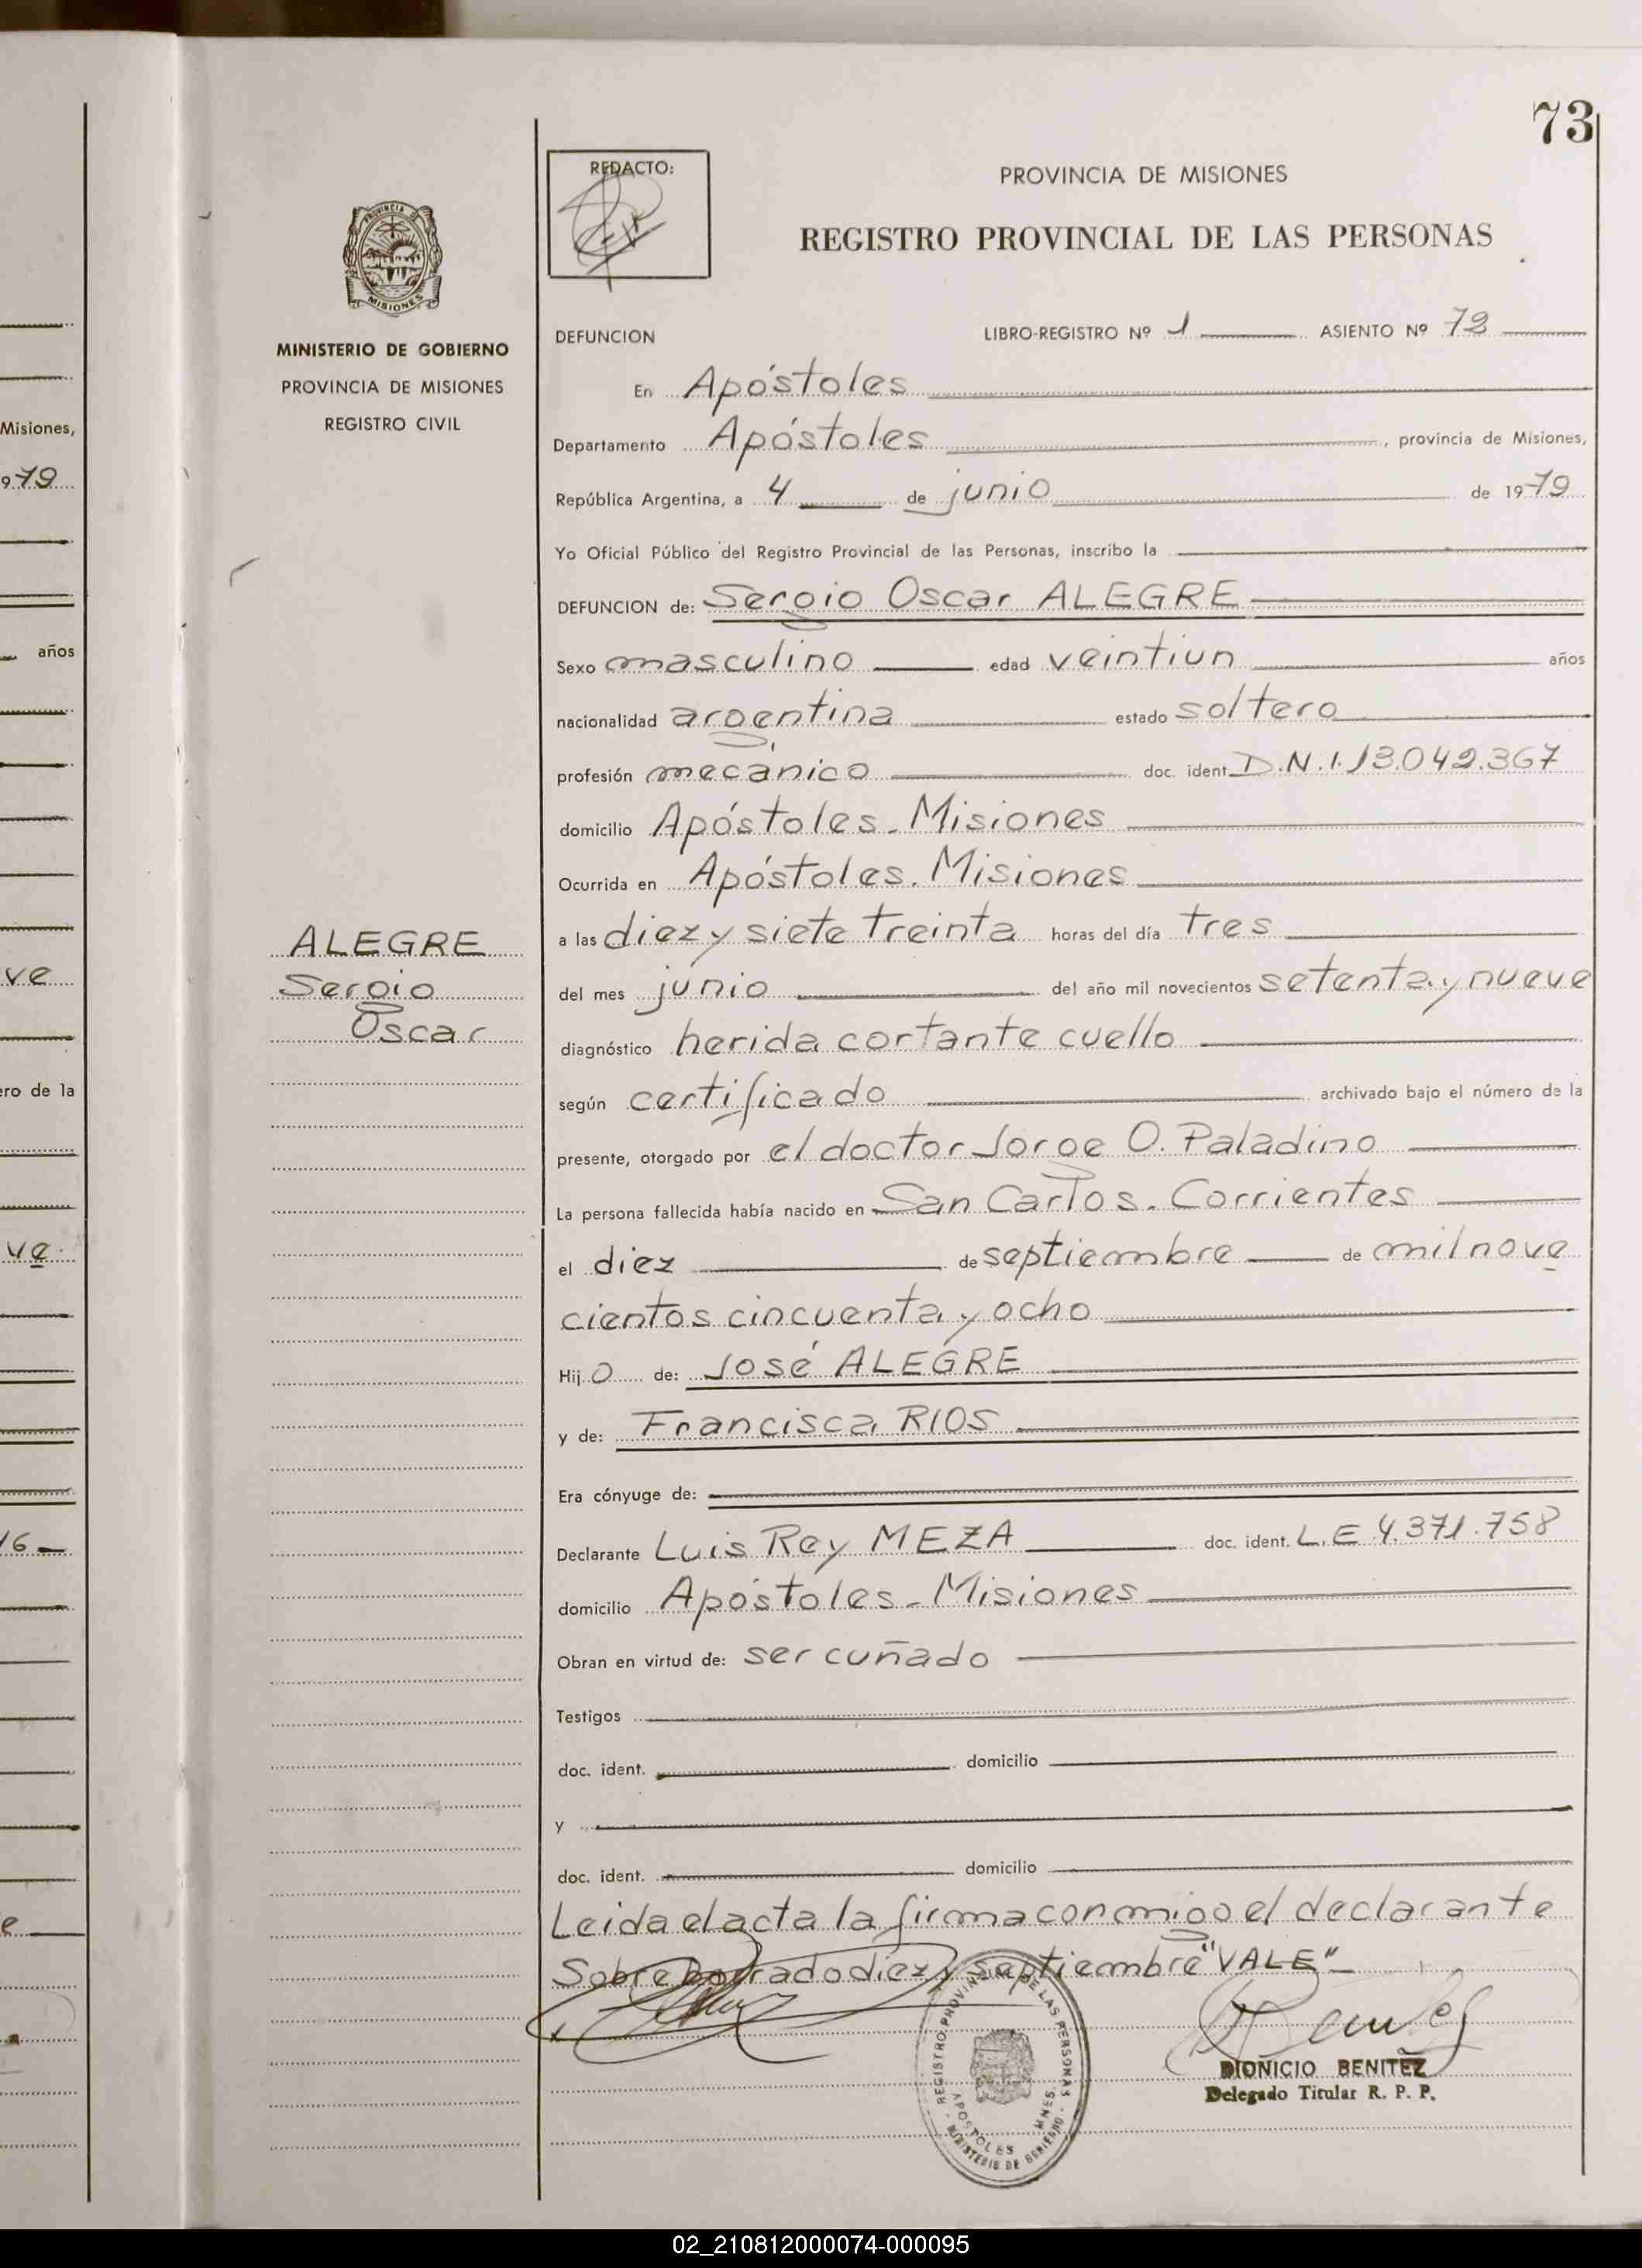 73
REDACTO:
PROVINCIA DE MISIONES
REGISTRO PROVINCIAL DE LAS PERSONAS
PROVINCIA DE
MISIONES
MINISTERIO DE GOBIERNO
PROVINCIA DE MISIONES
REGISTRO CIVIL
DEFUNCION LIBRO-REGISTRO Nº 1 ASIENTO Nº 72
En Apóstoles
Departamento Apóstoles, provincia de Misiones,
República Argentina, a 4 de junio de 1979
Yo Oficial Público del Registro Provincial de las Personas, inscribo la
DEFUNCION de: Sergio Oscar ALEGRE
Sexo masculino edad veintiun años
nacionalidad argentina estado soltero
profesión mecánico doc. ident. D.N.I. 13.042.367
domicilio Apóstoles - Misiones
Ocurrida en Apóstoles. Misiones
a las diez y siete treinta horas del día tres
del mes junio del año mil novecientos setenta y nueve
diagnóstico herida cortante cuello
según certificado archivado bajo el número de la
presente, otorgado por el doctor Jorge O. Paladino
La persona fallecida había nacido en San Carlos. Corrientes
el diez de septiembre de mil nove
cientos cincuenta y ocho
Hijo de: José ALEGRE
y de: Francisca RIOS
Era cónyuge de:
Declarante Luis Rey MEZA doc. ident. L.E 4.371.758
domicilio Apóstoles - Misiones
Obran en virtud de: ser cuñado
Testigos
doc. ident. domicilio
y
doc. ident. domicilio
Leida el acta la firma conmigo el declarante
Sobre borrado diez y septiembre "VALE"
ALEGRE
Sergio
Oscar
REGISTRO PROVINCIAL DE LAS PERSONAS
APOSTOLES MNES.
MINISTERIO DE GOBIERNO
DIONICIO BENITEZ
Delegado Titular R. P. P.
Misiones,
979
años
ve
ero de la
ve
16
e
a
02_210812000074-000095